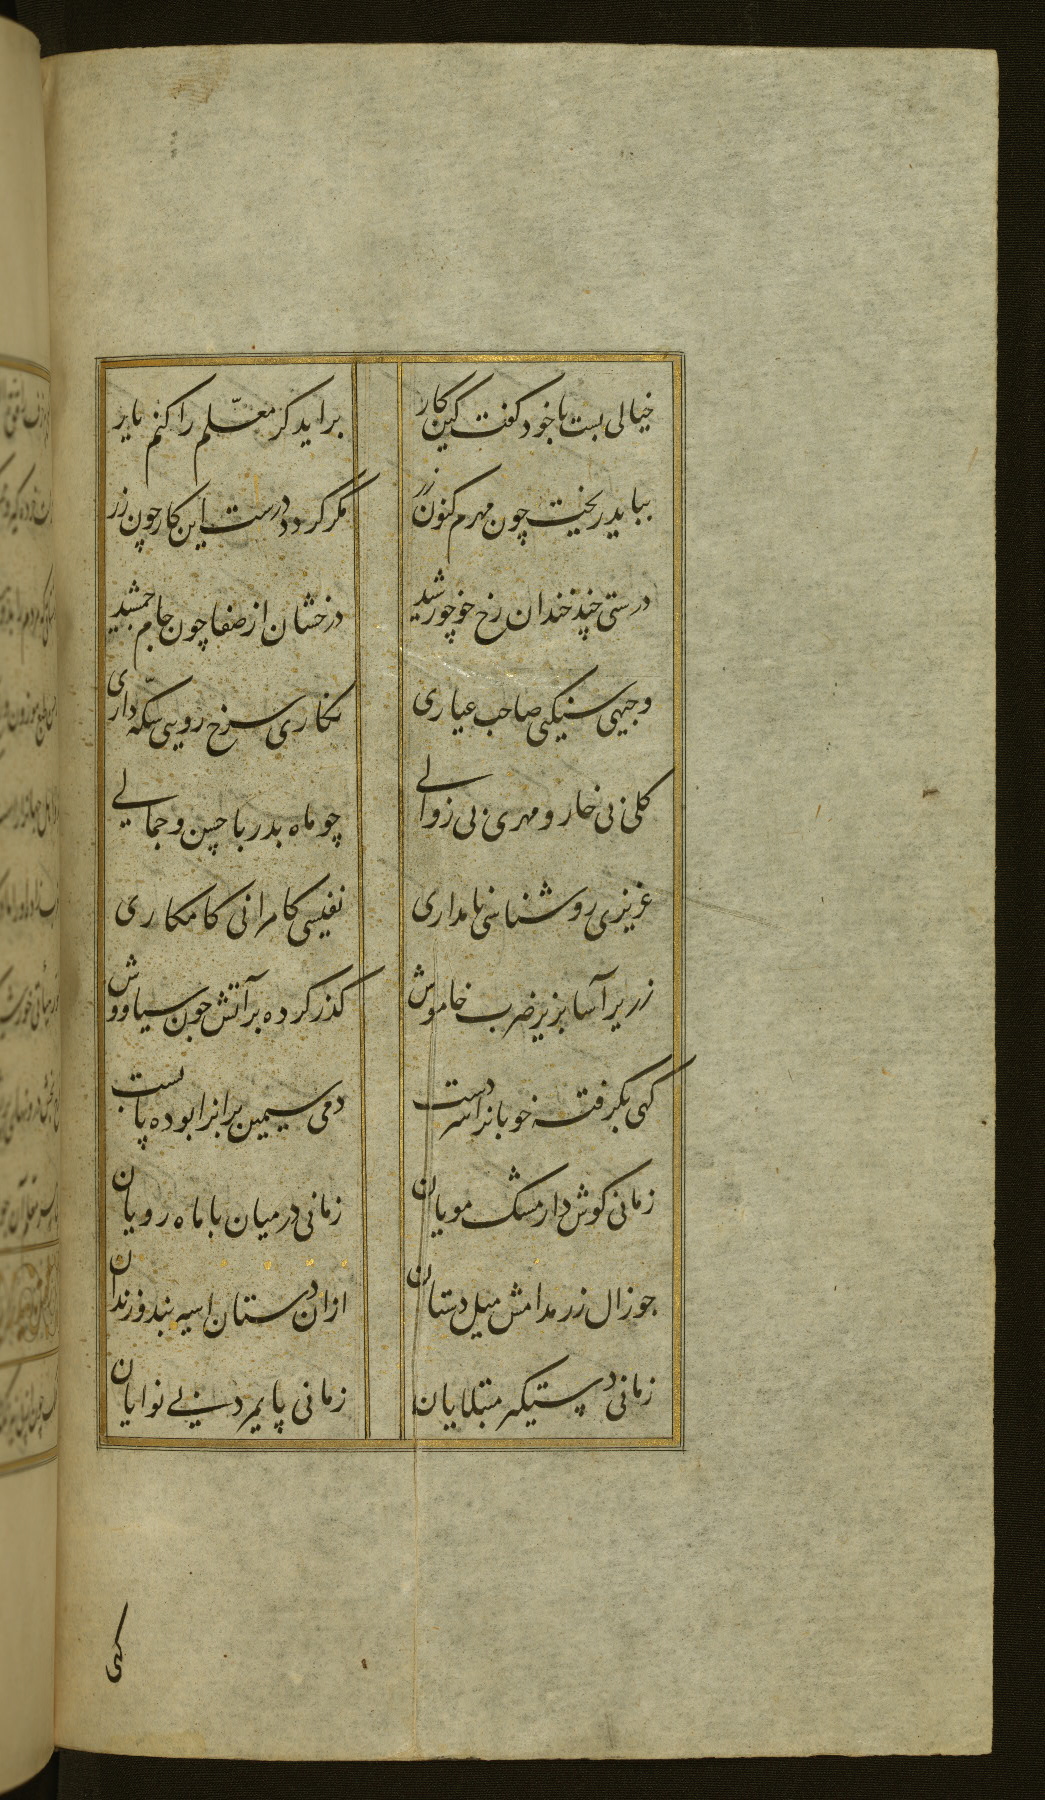 خیالی بست با خود کفت کین کار
براید کر معلّم را کنم یار
بباید ریخت چون مهرم کنون زر
مکر کردد درست این کار چون زر
درستی چند خندان رخ چو خورشید
درخشان از صفا چون جام جمشید
وجیهی سنیکی صاحب عیاری
نکاری سرخ رویی سکّه داری
کلی بی خار و مهری بی زوالی
چو ماه بدر با حسن و جمالی
عزیزی روشناسی نامداری
نفیسی کامرانی کامکاری
زریر آسا بزیر ضرب خاموش
کذر کرده بر آتش چون سیاووش
کهی بکرفته خوبانرا سر دست
دمی سیمین برانرا بوده پا بست
زمانی کوش دار مشک مویان
زمانی در میان با ماه رویان
چو زال زر مدامش میل دستان
ازان دستان اسیر بند و زندان
زمانی دستیکر مبتلایان
زمانی پایمرد بی نوایان
کهی